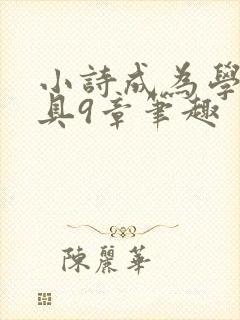 小詩成為學
具9章筆趣
陳麗華